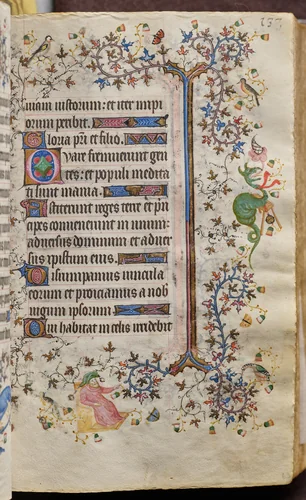 uiam iustorum: et iter impi
orum peribit.
Gloria p̄ri et filio.
Quare fremuerunt gen
tes: et populi medita
ti sunt inania.
Astiterunt reges terre et prin
cipes conuenerunt in unum:
aduersus dominum et aduer
sus xpistum eius.
Disrumpamus uincula
eorum et proiciamus a nob
iugum ipsorum
Qui habitat in celis irridebit